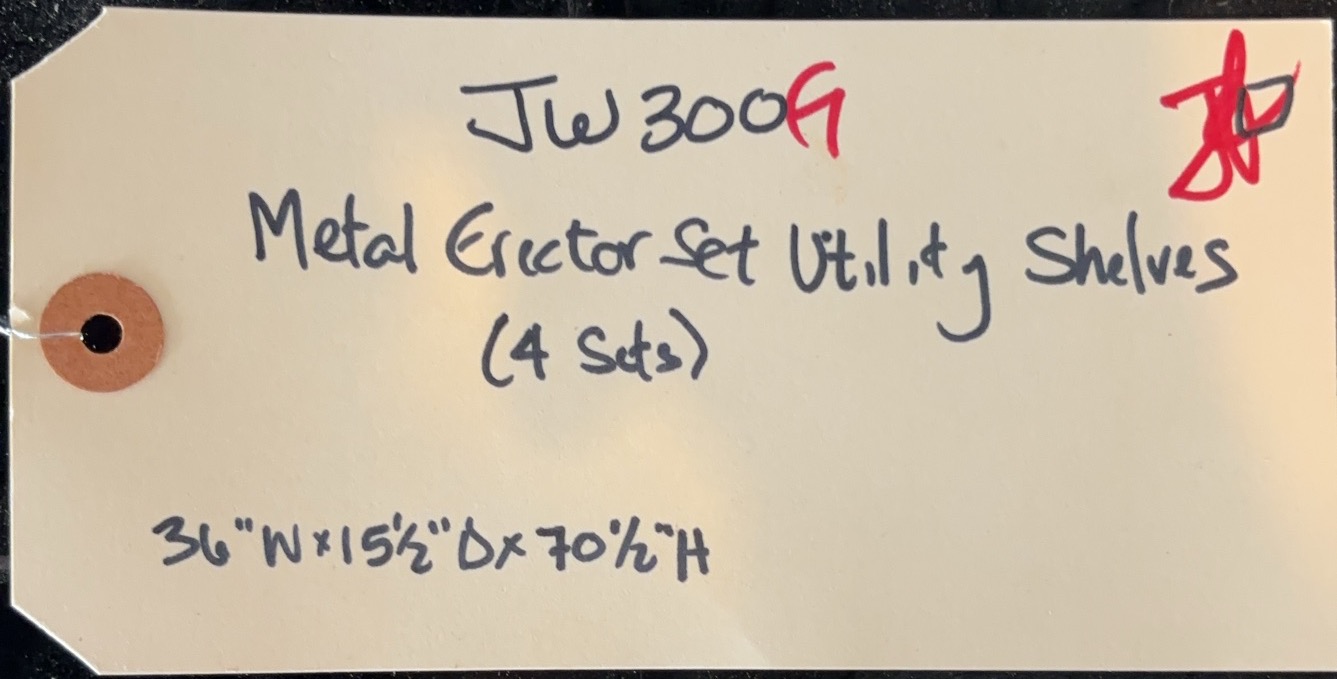 JW300G
Metal Erector Set Utility Shelves
(4 Sets)
36"W x 15½"D x 70½"H